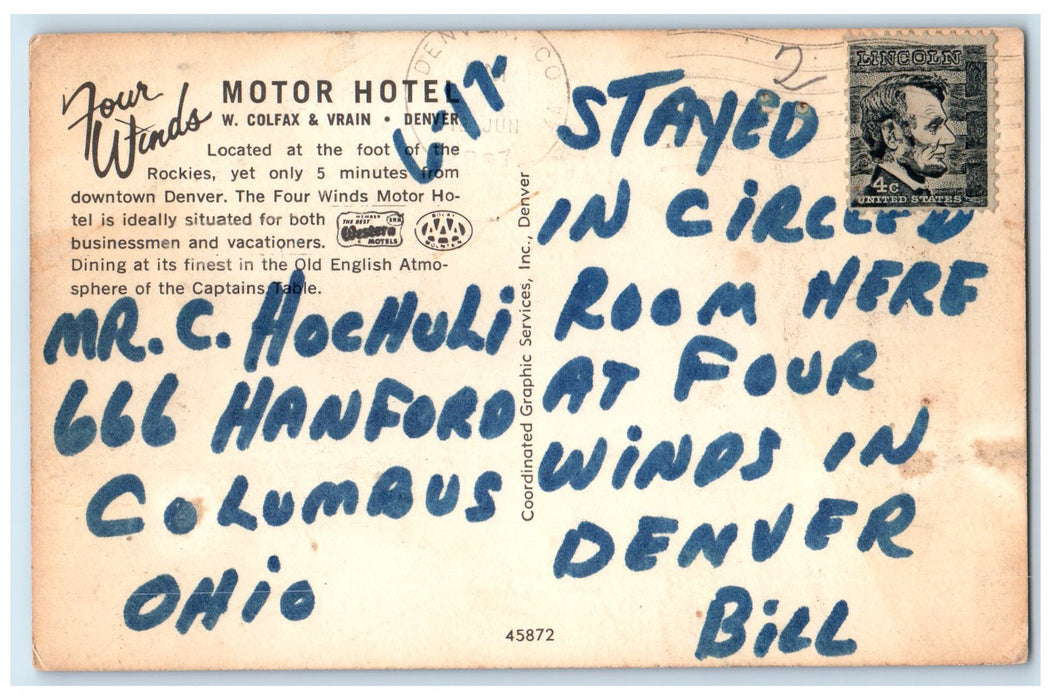 Four
Winds
MOTOR HOTEL
W. COLFAX & VRAIN • DENVER
Located at the foot of the
Rockies, yet only 5 minutes from
downtown Denver. The Four Winds Motor Ho-
tel is ideally situated for both
businessmen and vacationers.
Dining at its finest in the Old English Atmo-
sphere of the Captains Table.
MEMBER
THE BEST
Western
MOTELS
AAA
DENVER, CO
JUN
MR. C. HOCHULI
666 HANFORD
COLUMBUS
OHIO
Coordinated Graphic Services, Inc., Denver
45872
2
LINCOLN
4c
UNITED STATES
STAYED
IN CIRCLED
ROOM HERE
AT FOUR
WINDS IN
DENVER
BILL